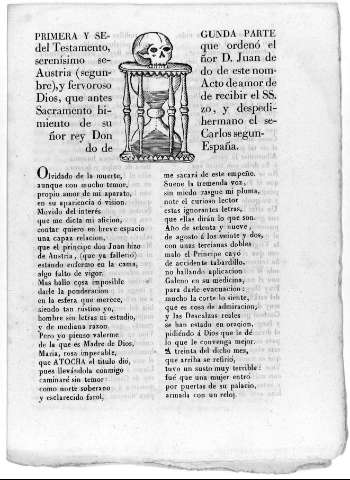 PRIMERA Y SE- GUNDA PARTE
del Testamento, que ordenó el
serenísimo se- ñor D. Juan de
Austria (segun- do de este nom-
bre), y fervoroso Acto de amor de
Dios, que antes de recibir el SS.
Sacramento hi- zo, y despedi-
miento de su hermano el se-
ñor rey Don Carlos segun-
do de España.
Olvidado de la muerte,
aunque con mucho temor,
propio amor de mi aparato,
en su apariencia ó vision.
Movido del interés
que me dicta mi aficion,
contar quiero en breve espacio
una capaz relacion,
que el príncipe don Juan hizo
de Austria, (que ya falleció)
estando enfermo en la cama,
algo falto de vigor.
Mas hallo cosa imposible
darle la ponderacion
en la esfera que merece,
siendo tan rústico yo,
hombre sin letras ni estudio,
y de mediana razon.
Pero yo pienso valerme
de la que es Madre de Dios,
María, rosa impecable,
que ATOCHA el título dió,
pues llevándola conmigo
caminaré sin temor:
como norte soberano
y esclarecido farol,
me sacará de este empeño.
Suene la tremenda voz,
sin miedo rasgue mi pluma,
note el curioso lector
estas ignorantes letras,
que ellas dirán lo que son.
Año de setenta y nueve,
de agosto á los veinte y dos,
con unas tercianas dobles
malo el Príncipe cayó
de accidente tabardillo,
no hallando aplicacion
Galeno en su medicina,
para darle evacuacion:
mucho la corte lo siente,
que es cosa de admiracion;
y las Descalzas reales
se han estado en oracion,
pidiéndo á Dios que le dé
lo que le convenga mejor.
A treinta del dicho mes,
que arriba se refirió,
tuvo un susto muy terrible:
fué que una muger entró
por puertas de su palacio,
armada con un reloj.